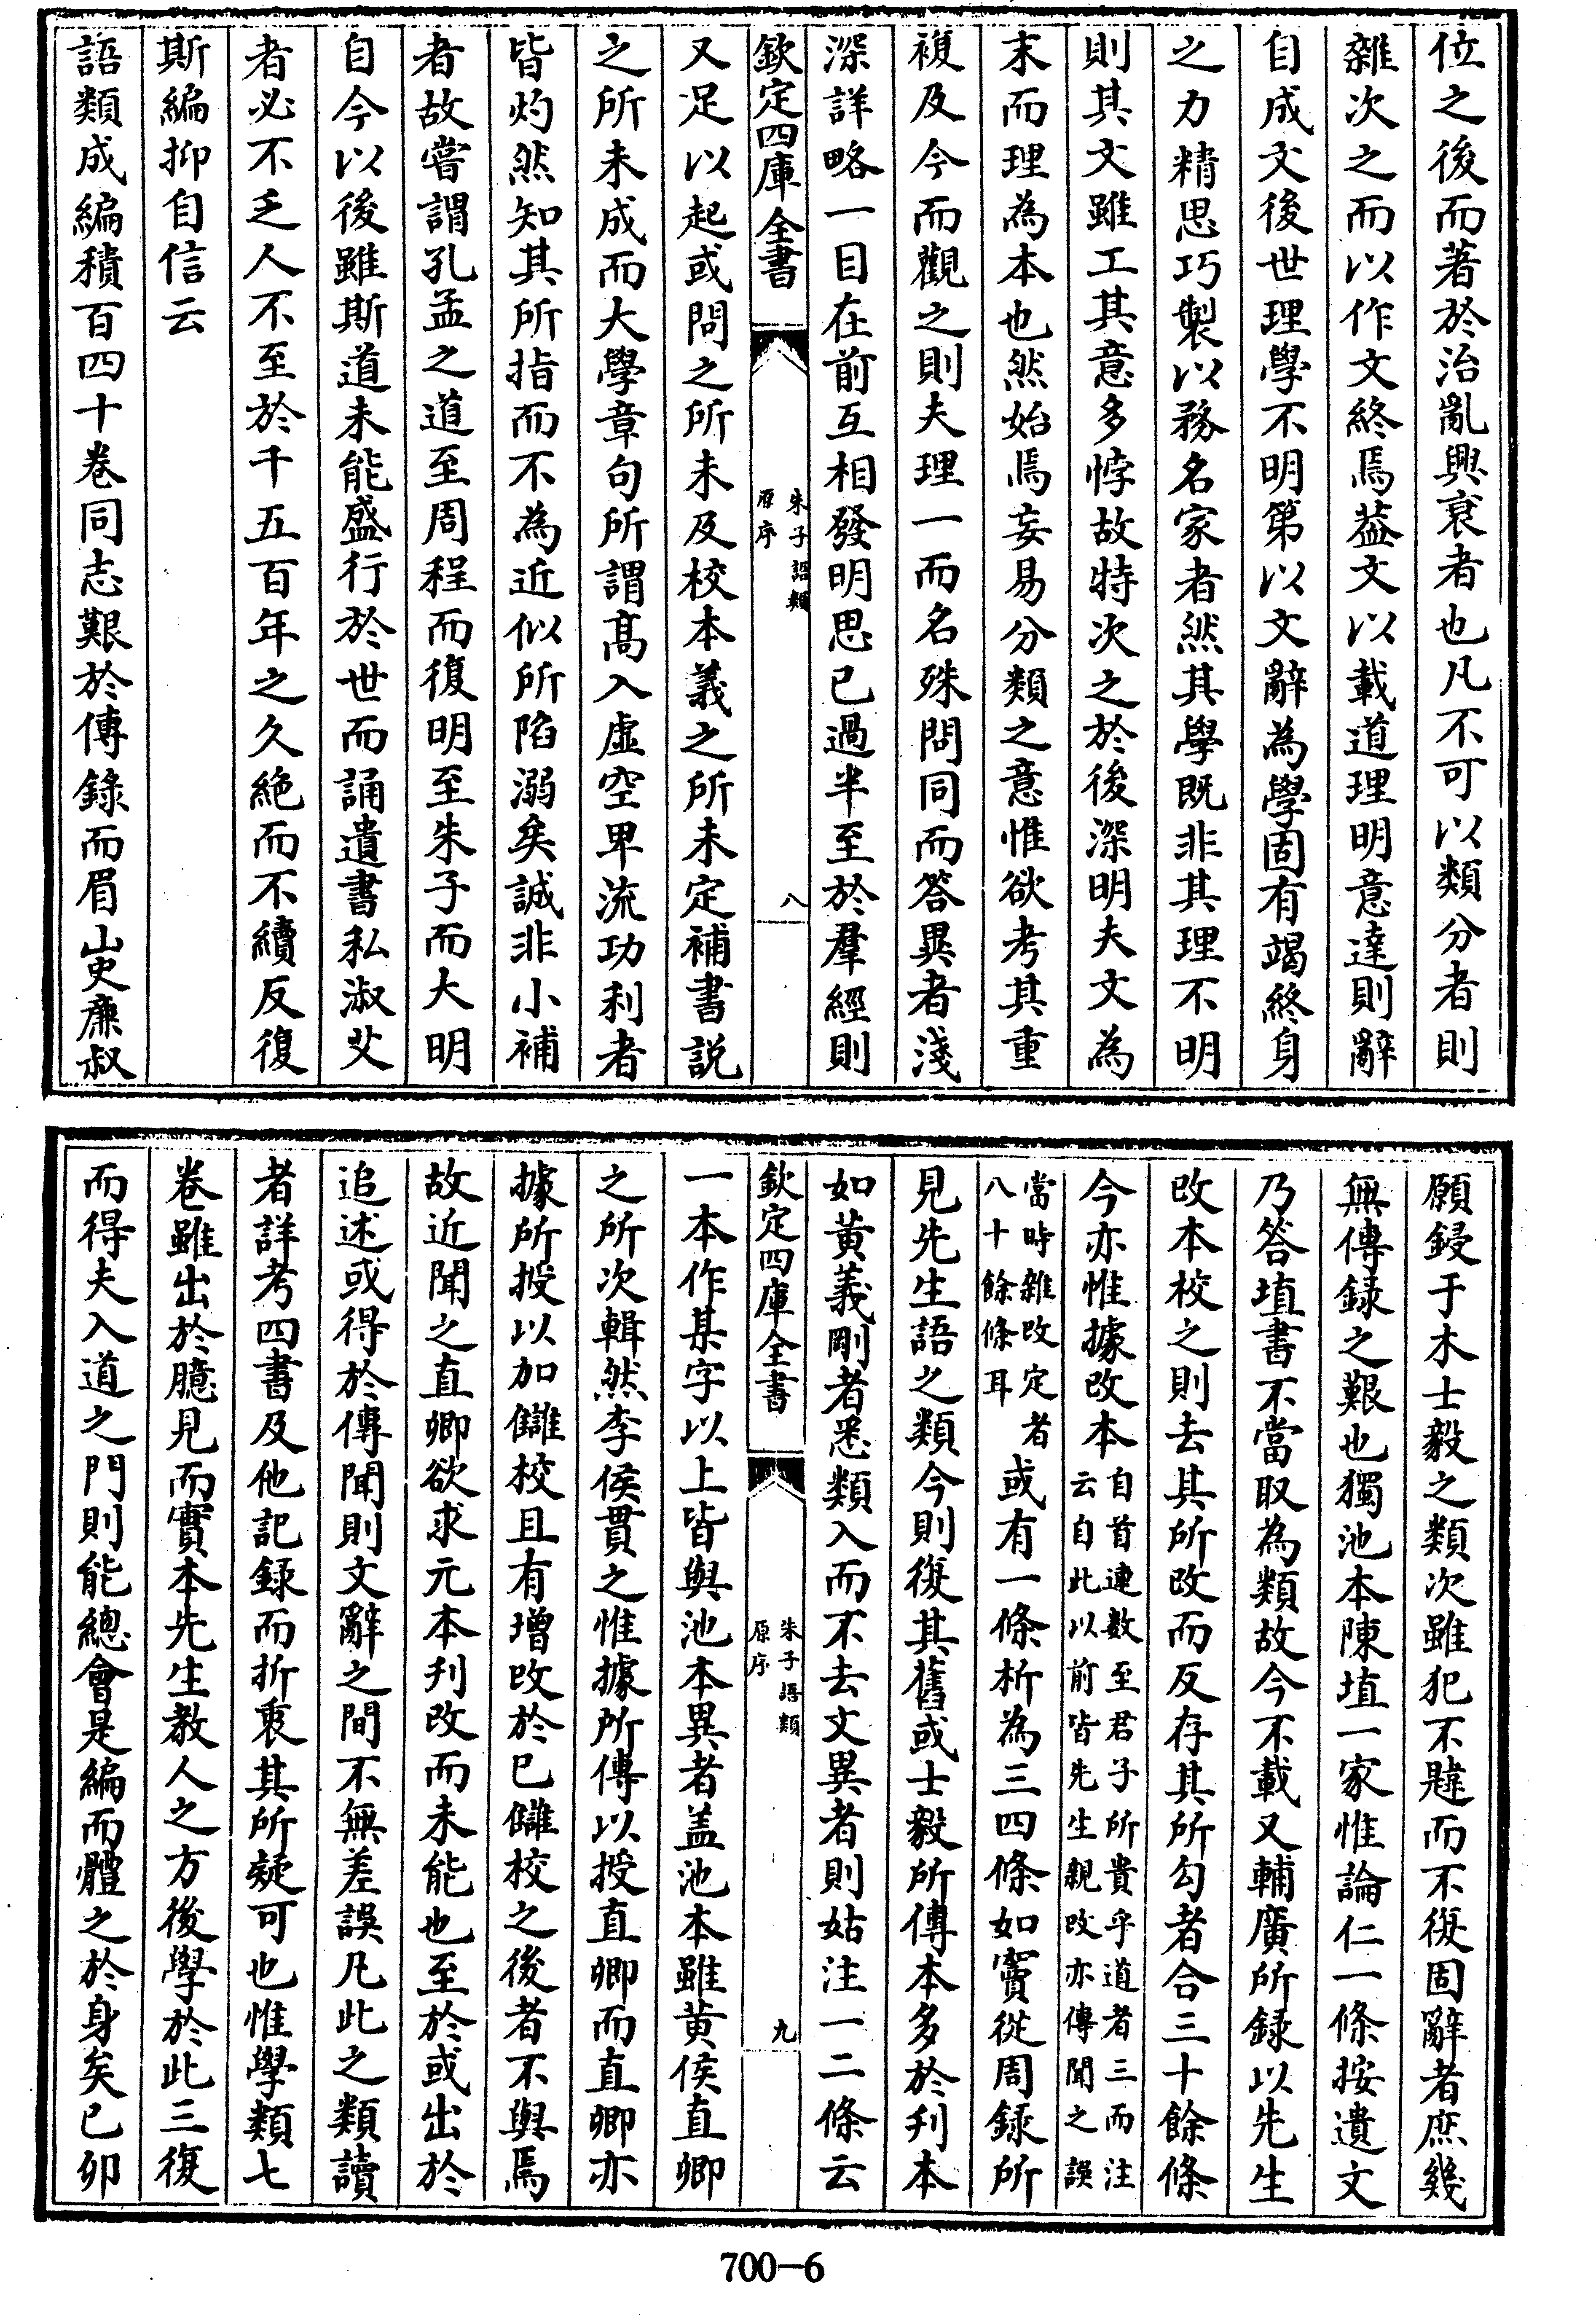 位之後而著於治亂興衰者也凡不可以類分者則
雜次之而以作文終焉葢文以載道理明意達則辭
自成文後世理學不明第以文辭為學固有竭終身
之力精思巧製以務名家者然其學既非其理不明
則其文雖工其意多悖故特次之於後深明夫文為
末而理為本也然始焉妄易分類之意惟欲考其重
複及今而觀之則夫理一而名殊問同而答異者淺
深詳略一目在前互相發明思已過半至於羣經則
欽定四庫全書
朱子語類
原序
八
又足以起或問之所未及校本義之所未定補書說
之所未成而大學章句所謂髙入虛空卑流功利者
皆灼然知其所指而不為近似所陷溺矣誠非小補
者故嘗謂孔孟之道至周程而復明至朱子而大明
自今以後雖斯道未能盛行於世而誦遺書私淑艾
者必不乏人不至於千五百年之久絶而不續反復
斯編抑自信云
語類成編積百四十卷同志艱於傳錄而眉山史廉叔
願鋟于木士毅之類次雖犯不韙而不復固辭者庶幾
無傳録之艱也獨池本陳埴一家惟論仁一條按遺文
乃答埴書不當取為類故今不載又輔廣所錄以先生
改本校之則去其所改而反存其所勾者合三十餘條
今亦惟據改本
自首連数至君子所貴乎道者三而注
云自此以前皆先生親改亦傳聞之誤
當時雜改定者
八十餘條耳
或有一條析為三四條如竇從周録所
見先生語之類今則復其舊或士毅所傳本多於刋本
如黃義剛者悉類入而不去文異者則姑注一二條云
欽定四庫全書
朱子語類
原序
九
一本作某字以上皆與池本異者盖池本雖黄侯直卿
之所次輯然李侯貫之惟據所傳以授直卿而直卿亦
據所授以加讎校且有增改於已讎校之後者不與焉
故近聞之直卿欲求元本刋改而未能也至於或出於
追述或得於傳聞則文辭之間不無差誤凡此之類讀
者詳考四書及他記錄而折衷其所疑可也惟學類七
卷雖出於臆見而實本先生教人之方後學於此三復
而得夫入道之門則能總會是編而體之於身矣已卯
700-6